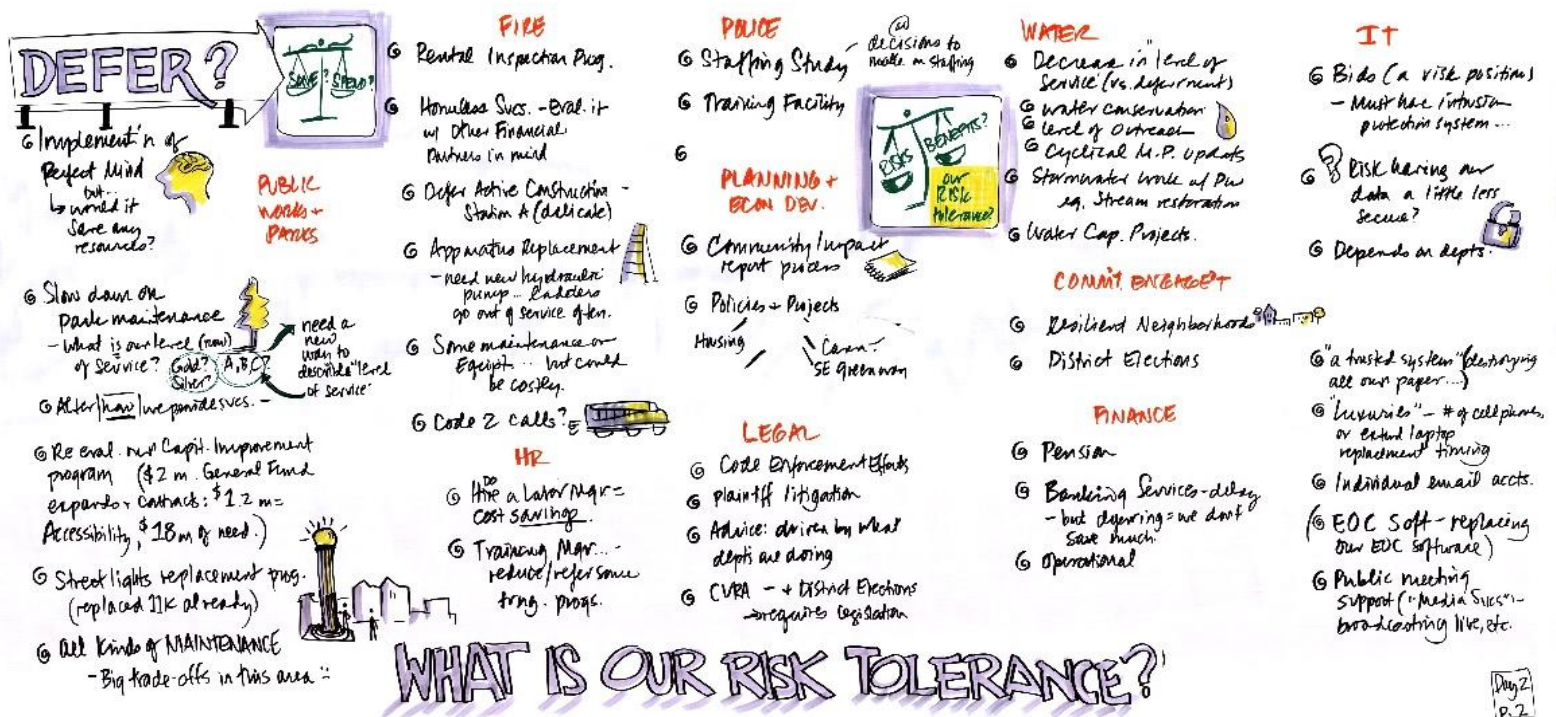 DEFER?
SAVE? SPEND?
Implement'n of
Perfect Mind
but...
↳ would it
save any
resources?
PUBLIC
WORKS +
PARKS
Slow down on
park maintenance
- What is our level (now)
of service? Gold? Silver? A, B, C?
need a
new
way to
describe "level
of service"
Alter how we provide svcs. -
Re eval. our Capit. Improvement
program ($2 m. General Fund
expands + contracts: $1.2 m =
Accessibility, $18m of need.)
Street lights replacement prog.
(replaced 11K already)
All kinds of MAINTENANCE
- Big trade-offs in this area -
FIRE
Rental Inspection Prog.
Homeless Svcs. - Eval. it
w/ Other Financial
Partners in mind
Defer Active Construction -
Station A (delicate)
Apparatus Replacement
- need new hydraulic
pump... ladders
go out of service often.
Some maintenance on
Equipt... but could
be costly.
Code 2 calls?
HR
DO
Hire a Labor Mgr =
cost savings.
Training Mgr... -
reduce/refer some
trng. progs.
POLICE
Staffing Study
decisions to
make on staffing
Training Facility
RISKS BENEFITS?
our
RISK
tolerance?
PLANNING +
ECON DEV.
Community Impact
report process
Policies + Projects
Housing
SE greenway
LEGAL
Code Enforcement Efforts
plaintiff litigation
Advice: driven by what
depts are doing
CVRA - + District Elections
→ requires legislation
WATER
Decrease in "level of
Service" (vs. deferments)
water conservation
level of Outreach
Cyclical M.P. updates
Stormwater work w/ PW
eg. Stream restoration
Water Cap. Projects.
COMM'T. ENGAGE'T
Resilient Neighborhoods
District Elections
FINANCE
Pension
Banking Services - delay
- but deferring = we don't
save much.
Operational
IT
Bids (a risk position)
- Must have intrusion
protection system...
Risk having our
data a little less
secure?
Depends on depts.
"a trusted system" (destroying
all our paper...)
"Luxuries" - # of cell phones,
or extend laptop
replacement timing
Individual email accts.
(EOC Soft - replacing
our EOC software)
Public meeting
support ("Media Svcs" -
broadcasting live, etc.
WHAT IS OUR RISK TOLERANCE?
Day 2
p. 2